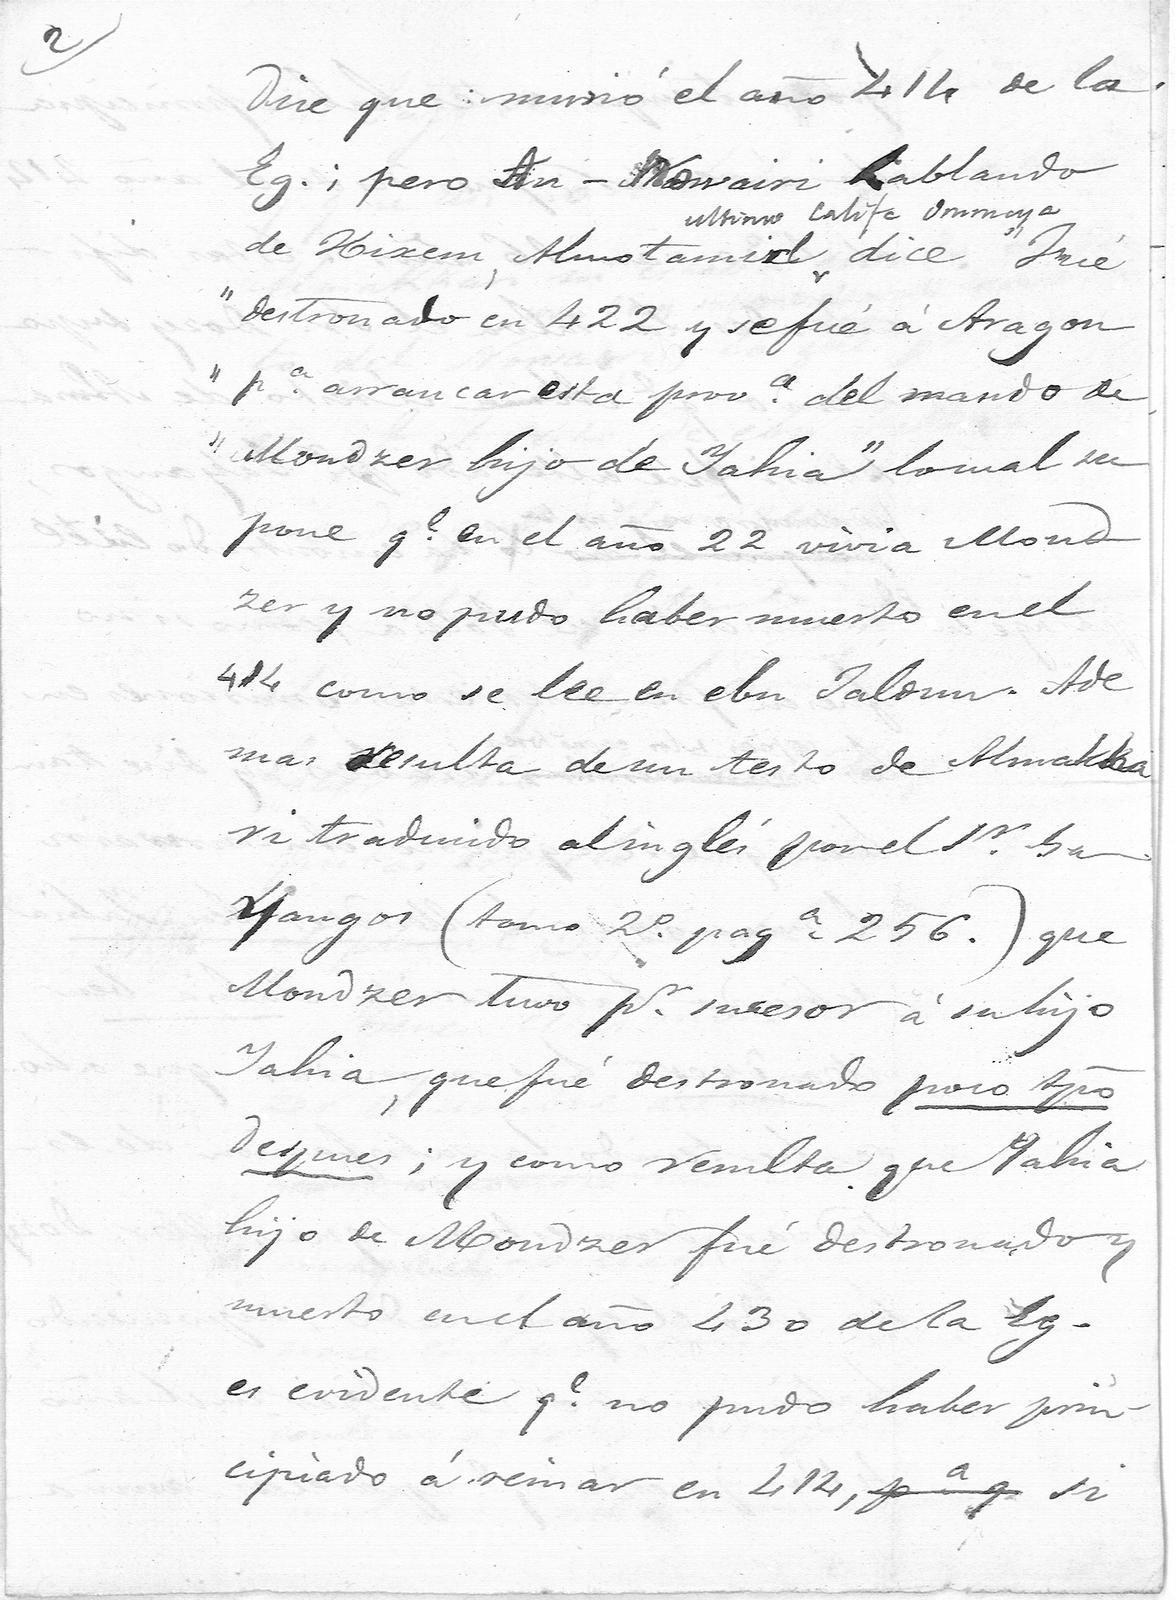 2
Dice que murió el año 414 de la
Eg.; pero An-Nowairi hablando
ultimo Califa Ommeya
de Hixem, Almotamid, dice "Fué
"destronado en 422 y se fué á Aragon
"pª. arrancar esta provª. del mando de
"Mondzer hijo de Iahia" lo cual su
pone qᵉ. en el año 22 vivia Mond
zer y no pudo haber muerto en el
414 como se lee en ebn Jaldun. Ade
mas resulta de un testo de Almakka
ri traducido al inglés por el Sr. Ga
Yangos (tomo 2º. pagª. 256.) que
Mondzer tuvo pr. sucesor á su hijo
Iahia, que fué destronado poco tpõ
despues; y como resulta que Yahia
hijo de Mondzer fué destronado y
muerto en el año 430 de la Eg.
es evidente qᵉ. no pudo haber prin-
cipiado á reinar en 414, pª q si